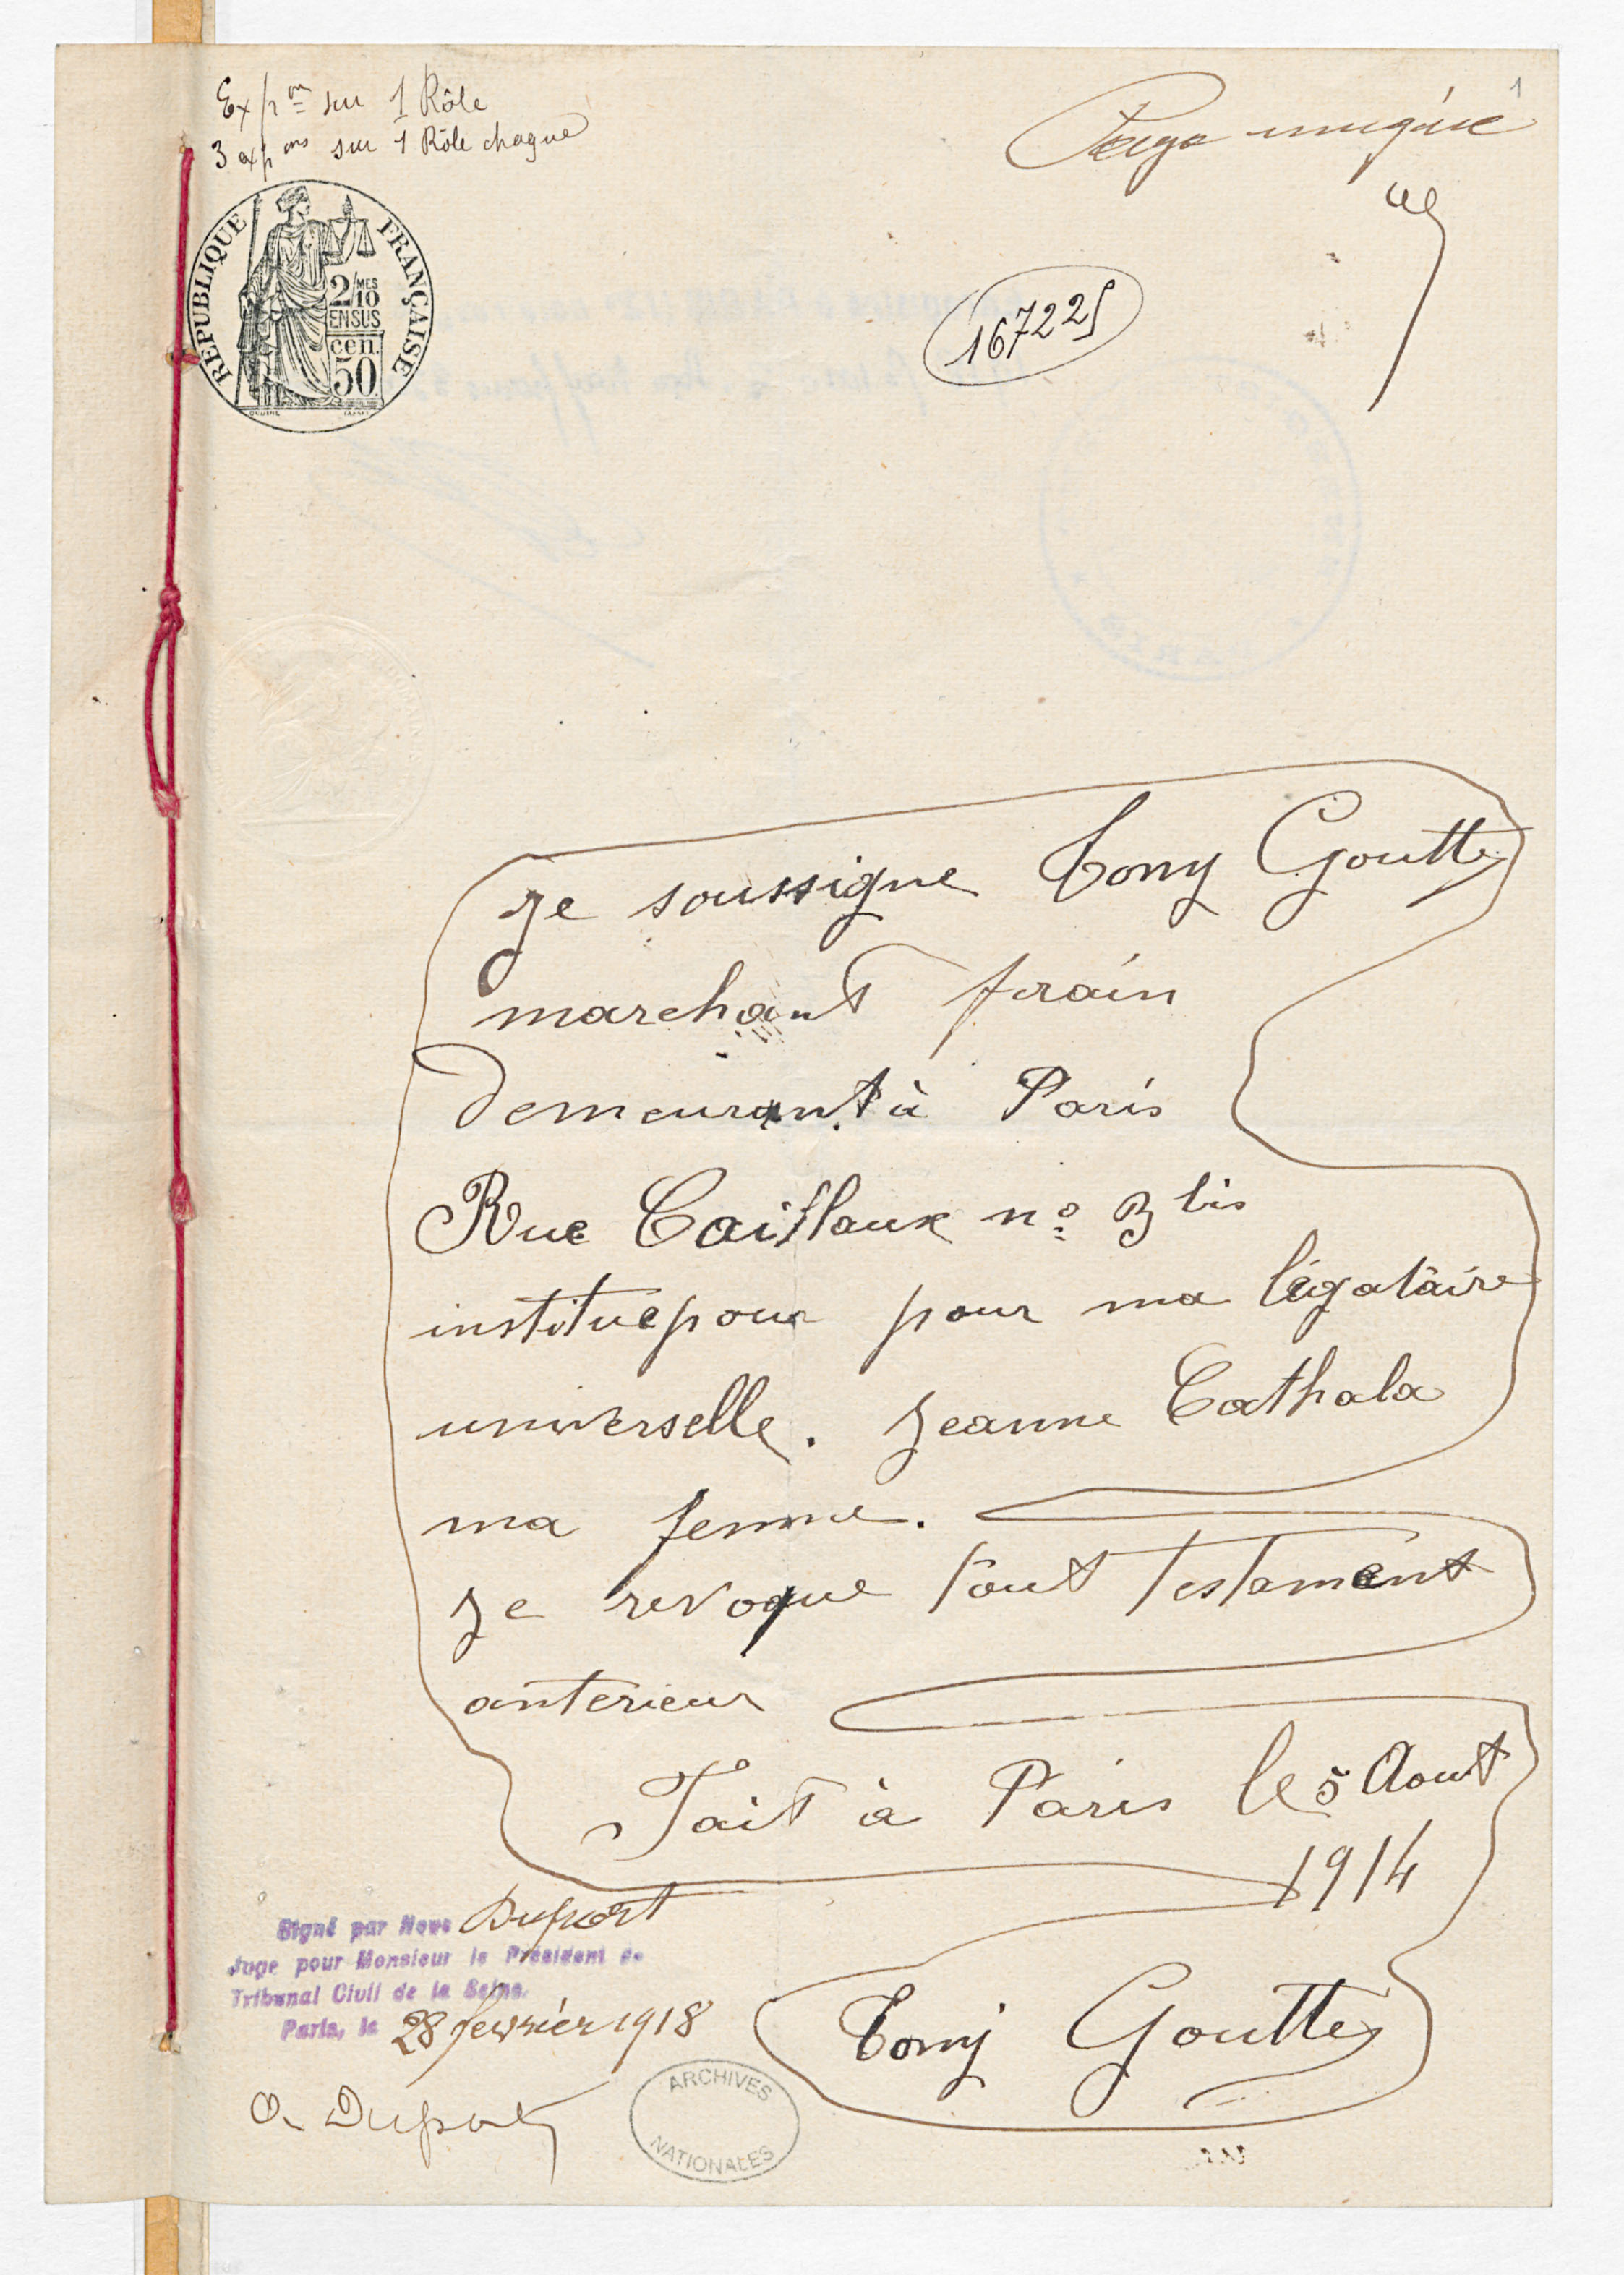 Exp on sur 1 Rôle
3 exp ons sur 1 Rôle chaque
Page unique
1
167225
REPUBLIQUE FRANÇAISE
2/MES
10
EN SUS
cen.
50
Je soussigne Tony Goutte
marchant forain
demeurant à Paris
Rue Caillaux nº 3 bis
institue pour pour ma légataire
universelle. Jeanne Cathala
ma femme.
Je revoque tout testament
anterieur
Fait à Paris le 5 Aout
1914
Tony Goutte
Signé par Nous Duport
Juge pour Monsieur le Président du
Tribunal Civil de la Seine.
Paris, le 28 fevrier 1918
ARCHIVES
NATIONALES